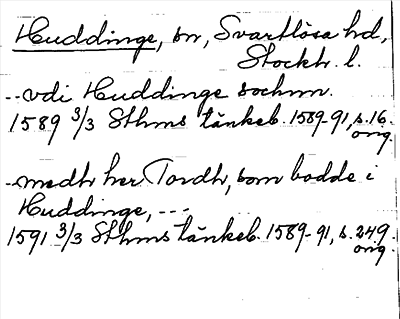 Huddinge, sn, Svartlösa hd,
Stockh. l.
--vdi Huddinge sochnn.
1589 3/3 Sthms tänkeb. 1589-91, s. 16.
orig.
--medh her Tordh, som bodde i
Huddinge, ---
1591 3/3 Sthms tänkeb. 1589-91, s. 249
orig.